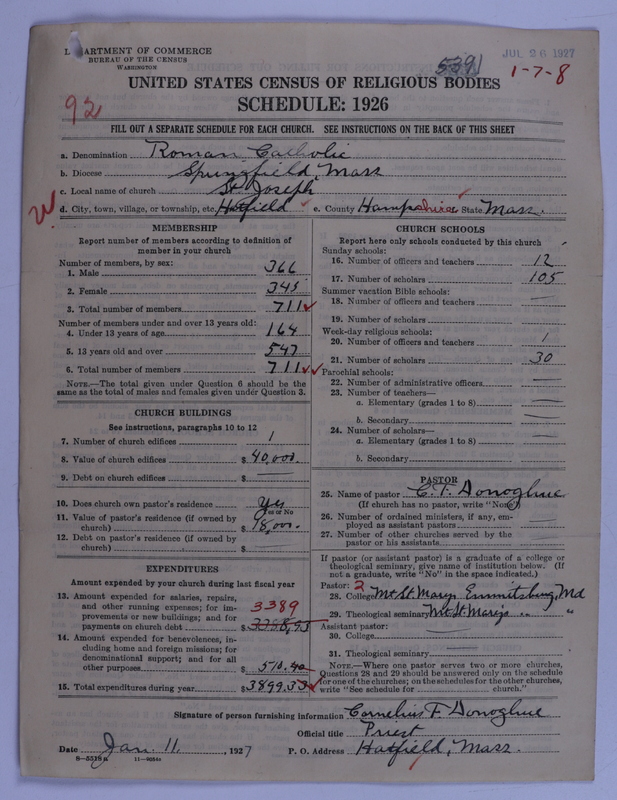 DEPARTMENT OF COMMERCE
BUREAU OF THE CENSUS
WASHINGTON
5391
JUL 26 1927
1-7-8
UNITED STATES CENSUS OF RELIGIOUS BODIES
SCHEDULE: 1926
92
FILL OUT A SEPARATE SCHEDULE FOR EACH CHURCH. SEE INSTRUCTIONS ON THE BACK OF THIS SHEET
a. Denomination Roman Catholic
b. Diocese Springfield, Mass
c. Local name of church St. Joseph
d. City, town, village, or township, etc. Hatfield e. County Hampshire State Mass.
MEMBERSHIP
Report number of members according to definition of
member in your church
Number of members, by sex:
1. Male 366
2. Female 345
3. Total number of members 711
Number of members under and over 13 years old:
4. Under 13 years of age 164
5. 13 years old and over 547
6. Total number of members 711
NOTE.—The total given under Question 6 should be the
same as the total of males and females given under Question 3.
CHURCH BUILDINGS
See instructions, paragraphs 10 to 12
7. Number of church edifices 1
8. Value of church edifices $ 40,000.
9. Debt on church edifices $ —
10. Does church own pastor's residence Yes
Yes or No
11. Value of pastor's residence (if owned by
church) $ 18,000.
12. Debt on pastor's residence (if owned by
church) $ —
EXPENDITURES
Amount expended by your church during last fiscal year
13. Amount expended for salaries, repairs,
and other running expenses; for im-
provements or new buildings; and for 3389
payments on church debt $ 3388.93
14. Amount expended for benevolences, in-
cluding home and foreign missions; for
denominational support; and for all
other purposes 510.40
15. Total expenditures during year $ 3899.33
CHURCH SCHOOLS
Report here only schools conducted by this church
Sunday schools:
16. Number of officers and teachers 12
17. Number of scholars 105
Summer vacation Bible schools:
18. Number of officers and teachers —
19. Number of scholars
Week-day religious schools:
20. Number of officers and teachers 1
21. Number of scholars 30
Parochial schools:
22. Number of administrative officers —
23. Number of teachers—
a. Elementary (grades 1 to 8) —
b. Secondary —
24. Number of scholars—
a. Elementary (grades 1 to 8) —
b. Secondary
PASTOR
25. Name of pastor C. F. Donoghue
(If church has no pastor, write "None")
26. Number of ordained ministers, if any, em-
ployed as assistant pastors —
27. Number of other churches served by the
pastor or his assistants —
If pastor (or assistant pastor) is a graduate of a college or
theological seminary, give name of institution below. (If
not a graduate, write "No" in the space indicated.)
Pastor: 2
28. College Mt St. Marys Emmitsburg, Md
29. Theological seminary Mt. St. Marys " "
Assistant pastor:
30. College —
31. Theological seminary —
NOTE.—Where one pastor serves two or more churches,
Questions 28 and 29 should be answered only on the schedule
for one of the churches; on the schedules for the other churches,
write "See schedule for church."
Signature of person furnishing information Cornelius F. Donoghue
Official title Priest
Date Jan. 11, 1927 P. O. Address Hatfield, Mass.
8—5518a 11—9054a